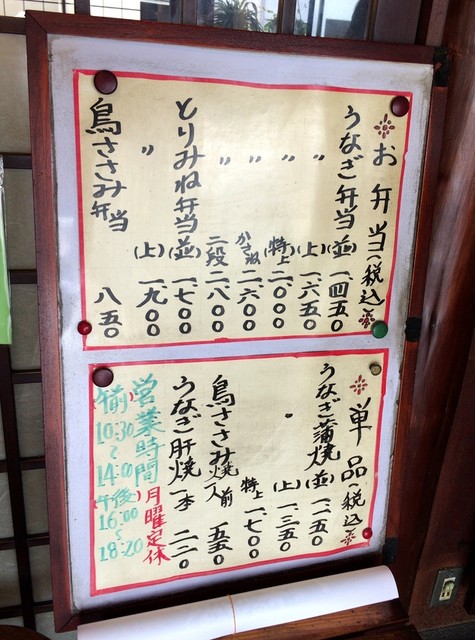 お弁当(税込)
うなぎ弁当(並)一、四五〇
〃(上)一、六五〇
〃(特上)二、〇〇〇
〃かさね二、六〇〇
〃二段二、八〇〇
とりみね弁当(並)一、七〇〇
〃(上)一、九〇〇
鳥ささみ弁当 八五〇
単品(税込)
うなぎ蒲焼(並)一、一五〇
〃(上)一、三五〇
特上一、七〇〇
鳥ささみ焼一人前 五五〇
うなぎ肝焼一本 二一〇
営業時間 月曜定休
午前10:30~14:00
午後16:00~18:20